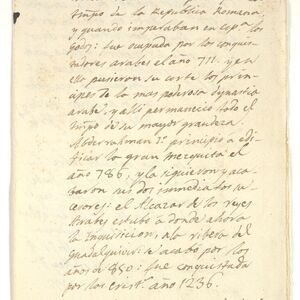 tiempo de la Republica Romana
y quando imperaban en espª los
godos: fue ocupada por los conquis-
tadores arabes el año 711. y en
ella pusieron su corte los prin-
cipes de la mas poderosa dynastia
arabe, y alli permanecio todo el
tiempo de su mayor grandeza.
Abderrahman 1º principio a edi-
ficar la gran mezquita el
año 786, y la siguieron y aca-
baron sus dos inmediatos su-
cesores: el Alcazar de los reyes
Arabes estubo a donde ahora
la Inquisicion, a la ribera del
Guadalquivir: se acabó por los
años de 850: fue conquistada
por los crist.ˢ año 1236.